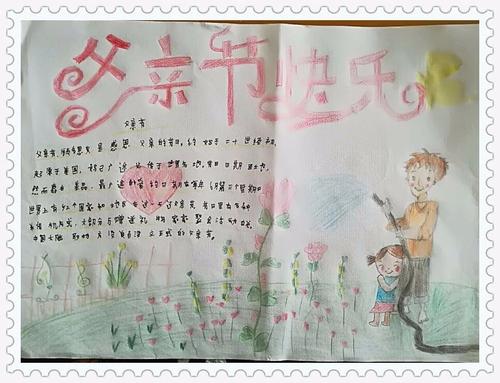 父亲节快乐
父亲节
父亲节,顾名思义是感恩父亲的节日。约始于二十世纪初,
起源于美国,现已广泛流传于世界各地,节日日期因地
然而存在差异。最广泛的日期在每年6月第三个星期日
世界上有52个国家和地区在这一天过父亲节。节日里有各种
庆祝方式,大部分与赠送礼物家族聚会活动有关。
中国大陆